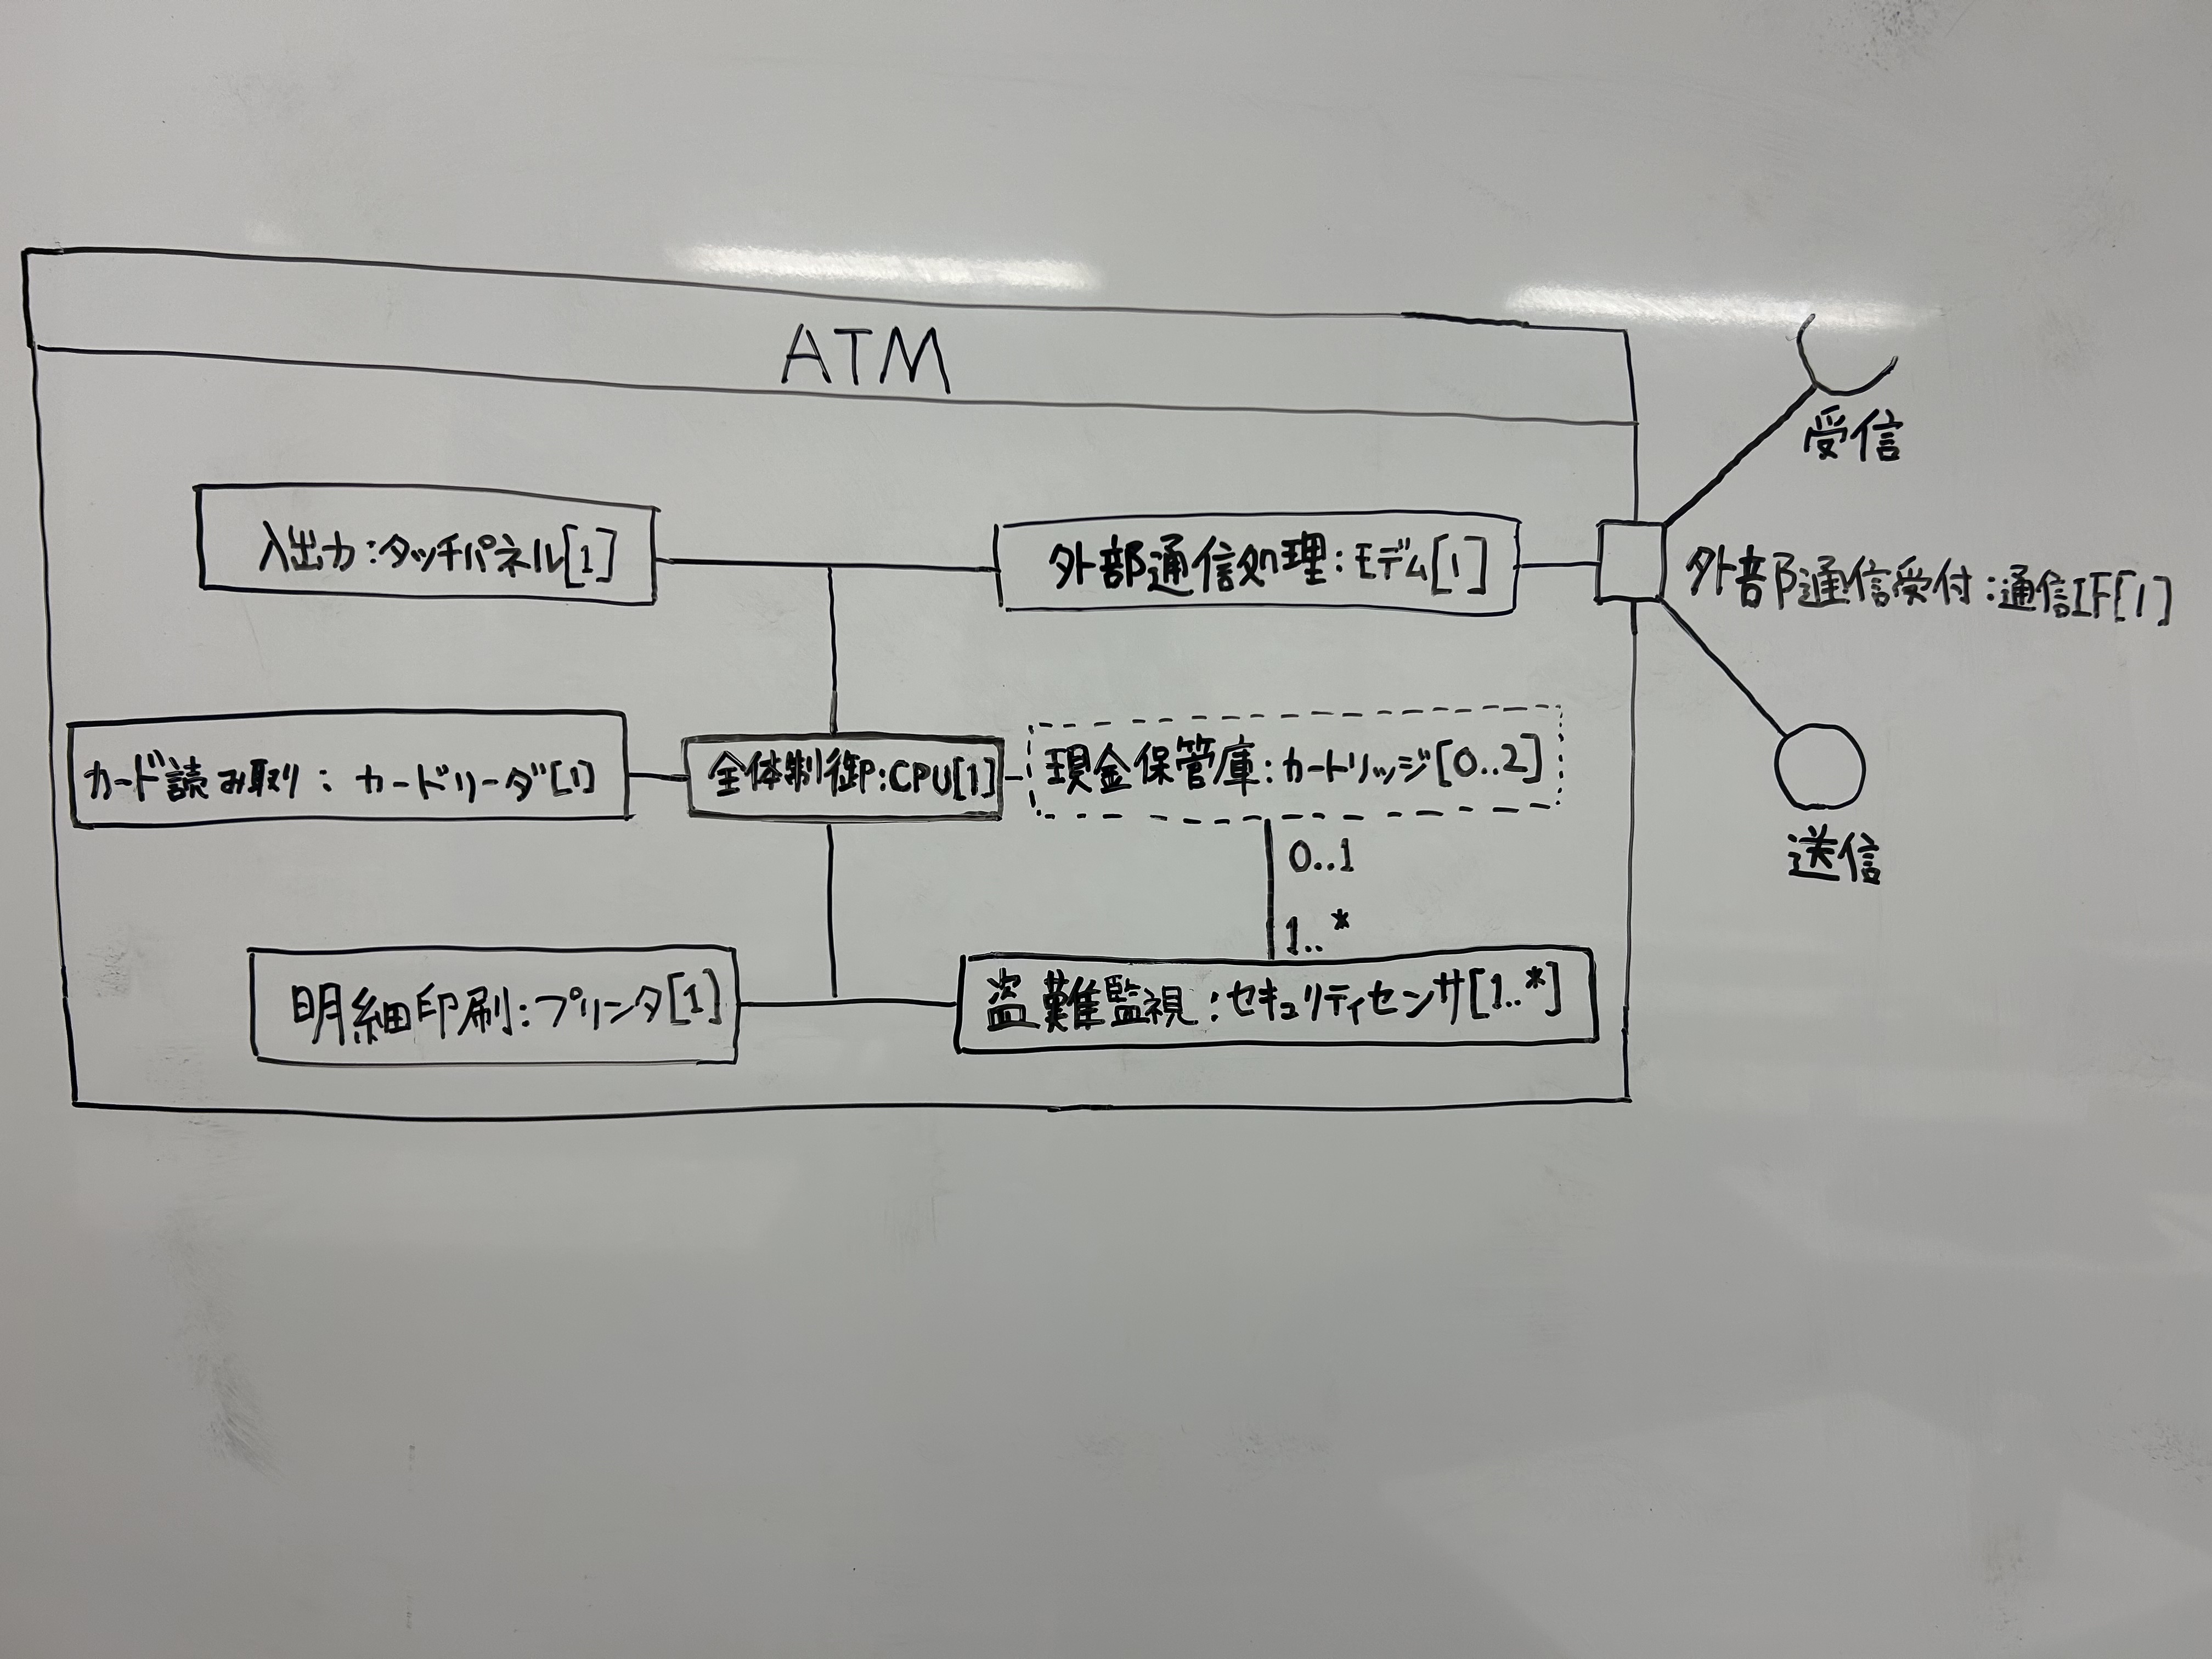 ATM
受信
入出力:タッチパネル[1]
外部通信処理:モデム[1]
外部通信受付:通信IF[1]
カード読み取り:カードリーダ[1]
全体制御:CPU[1]
現金保管庫:カートリッジ[0..2]
0..1
送信
1..*
明細印刷:プリンタ[1]
盗難監視:セキュリティセンサ[1..*]